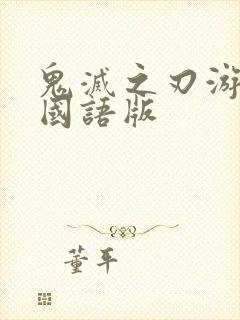 鬼滅之刃游
國語版
董平